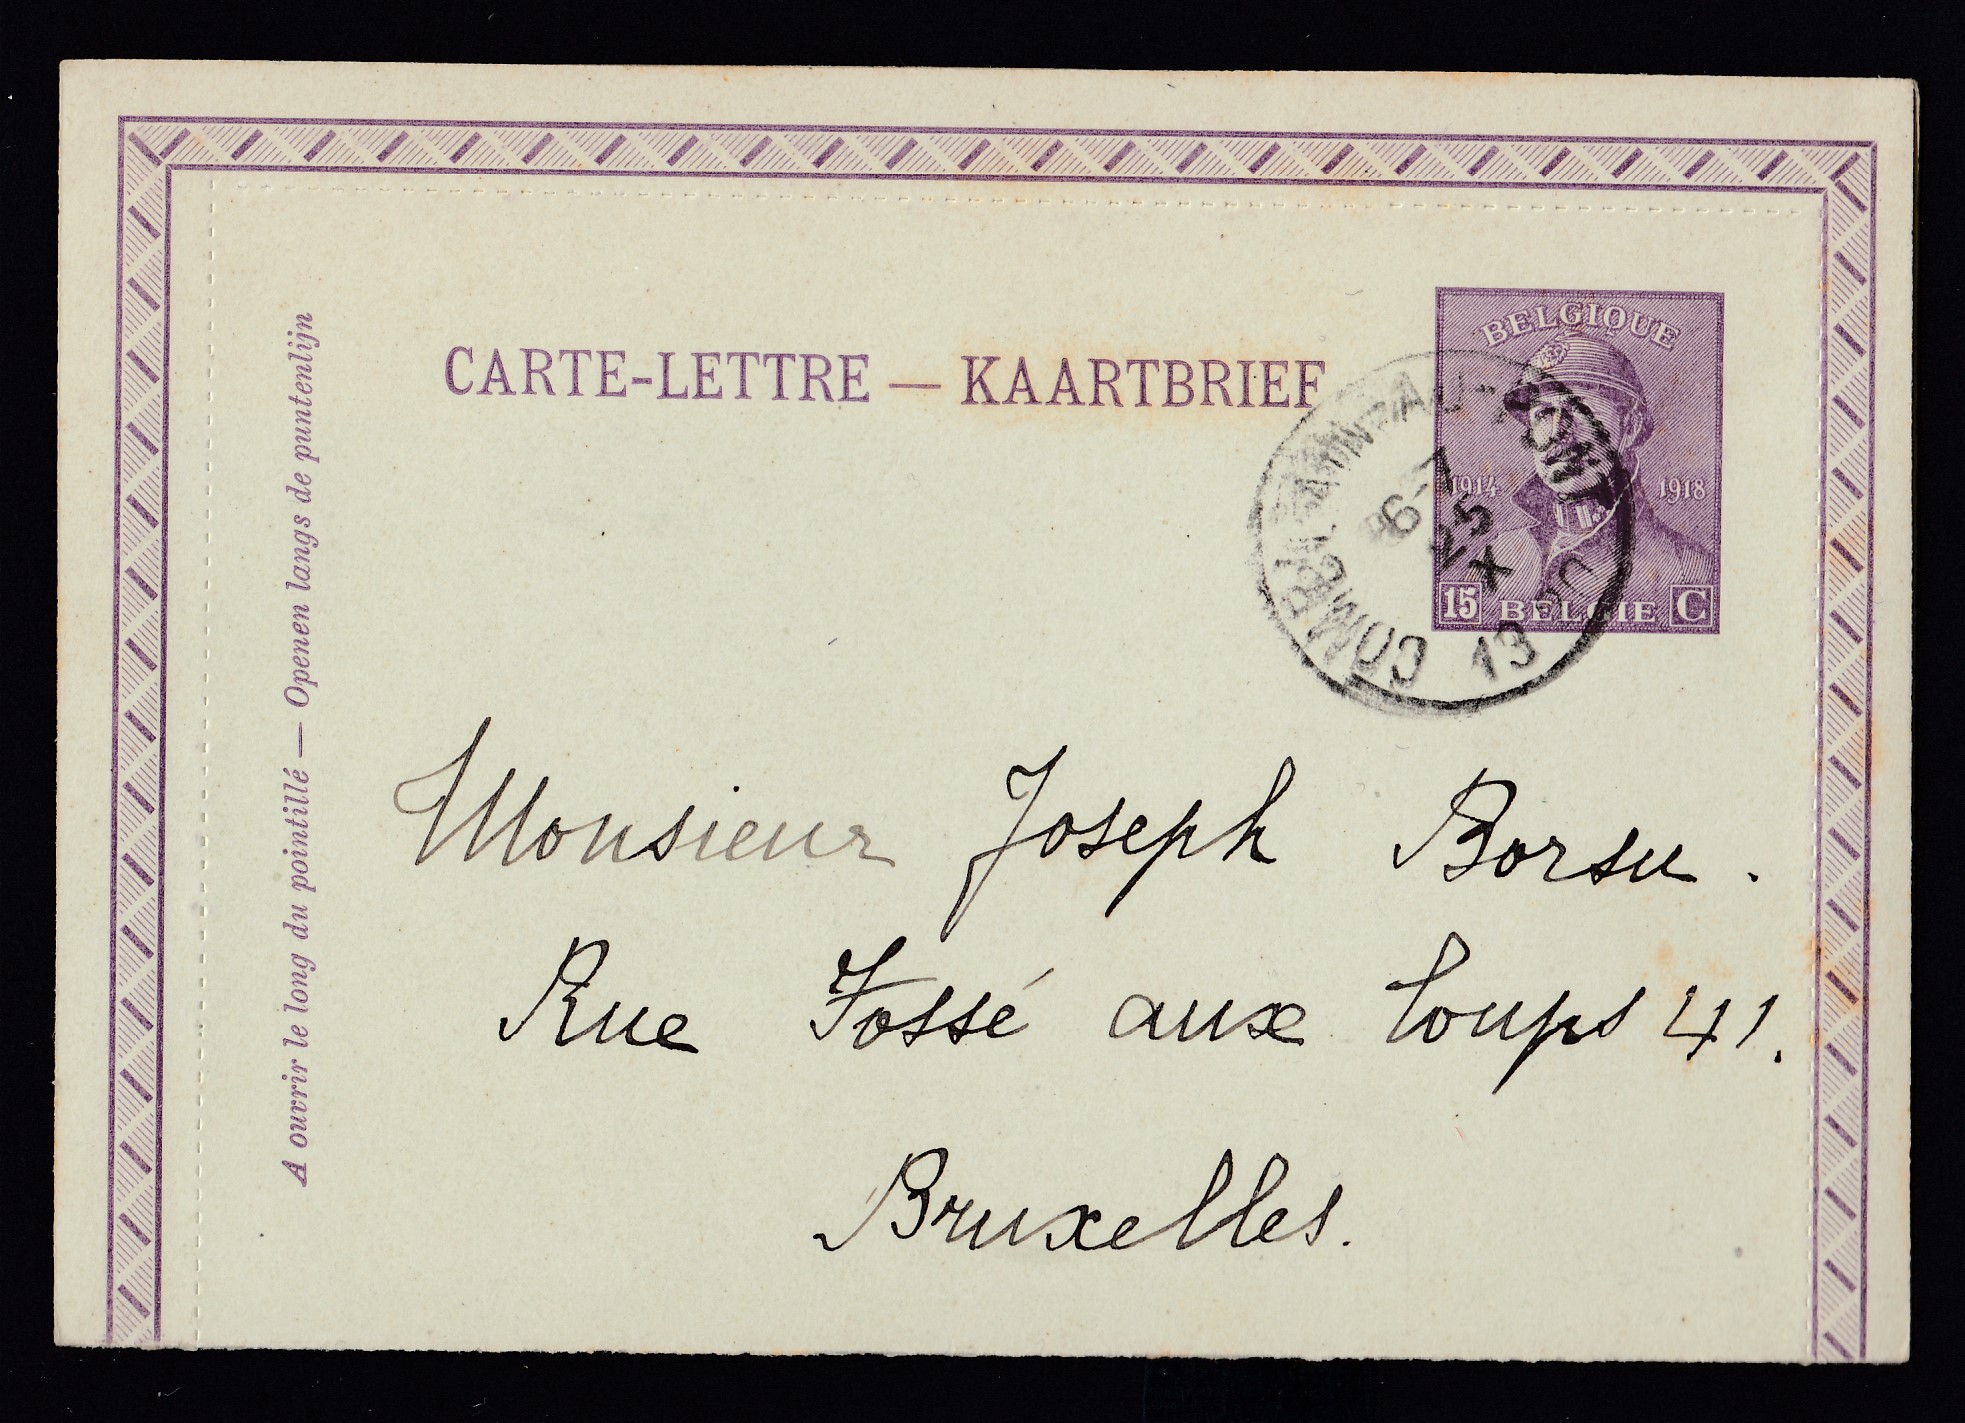 BELGIQUE
CARTE-LETTRE — KAARTBRIEF
1914 1918
6-7
25
X
15 BELGIE C
13
A ouvrir le long du pointillé — Openen langs de puntenlijn
Monsieur Joseph Borsu.
Rue Fossé aux loups 41.
Bruxelles.